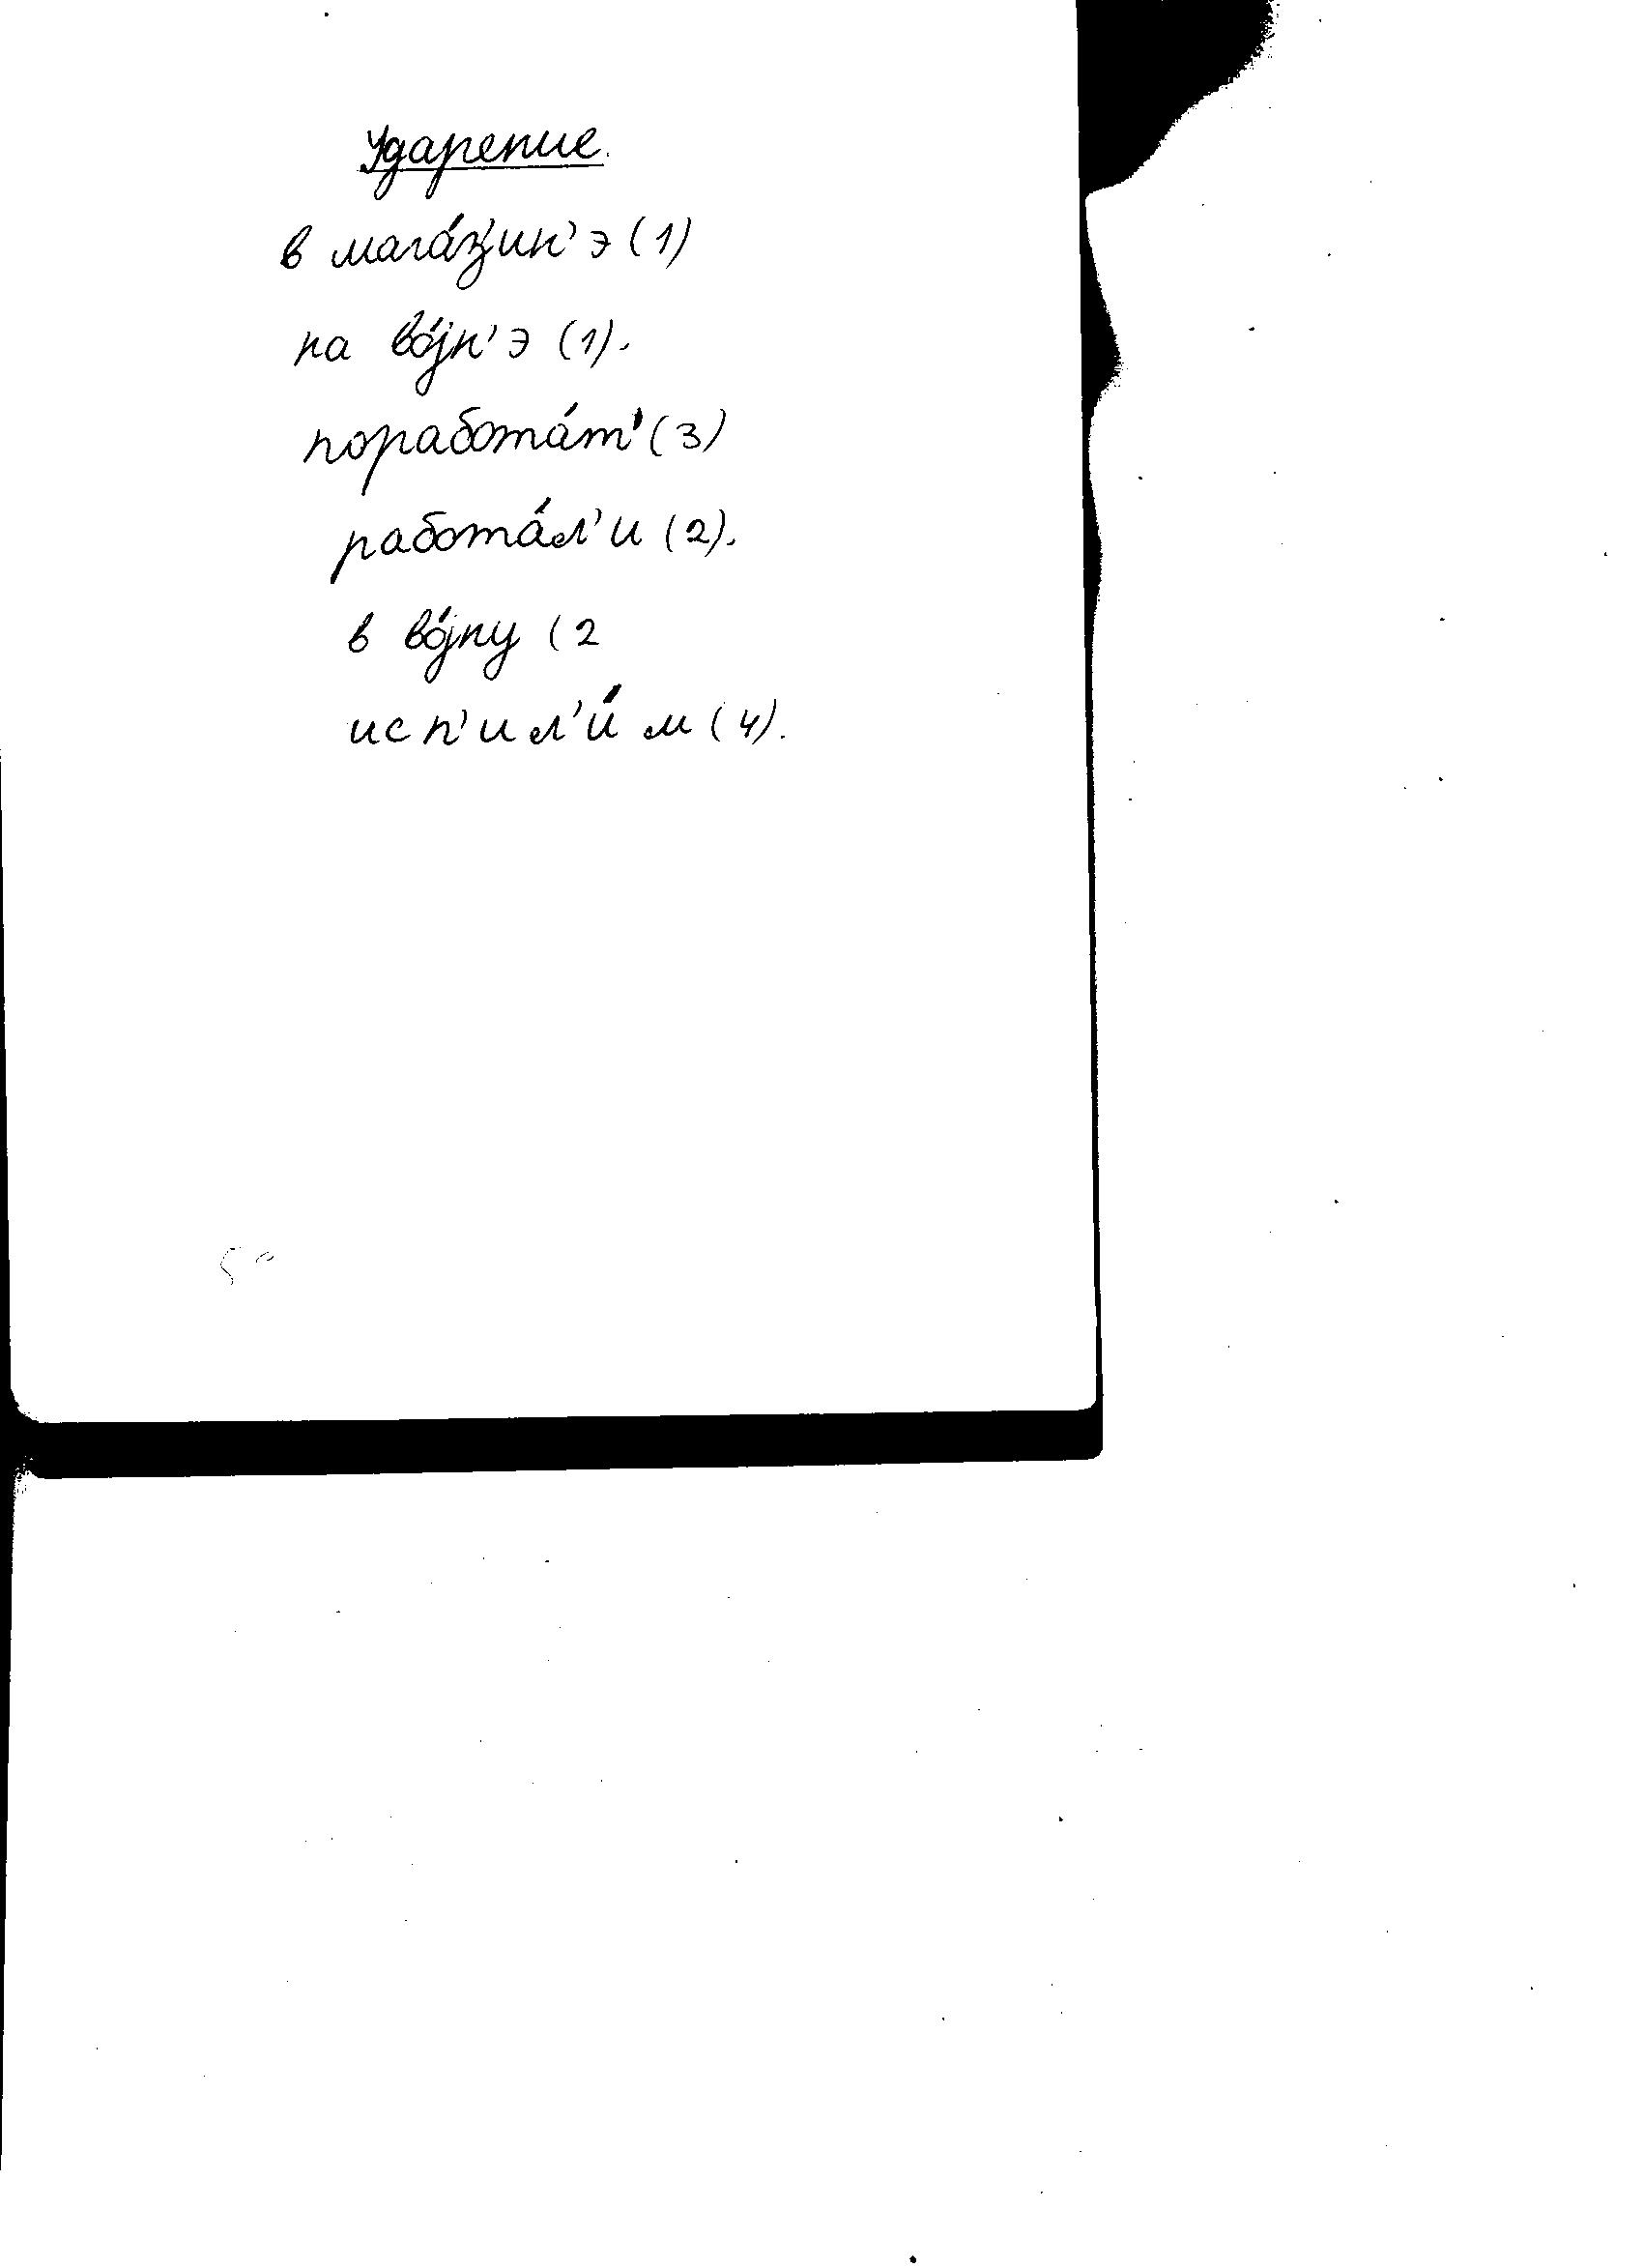 Ударение.
в мага́з'ин'э (1)
на во́jн'э (1).
поработа́т' (3)
работа́л'и (2).
в во́jну (2
исп'ил'и́м (4).